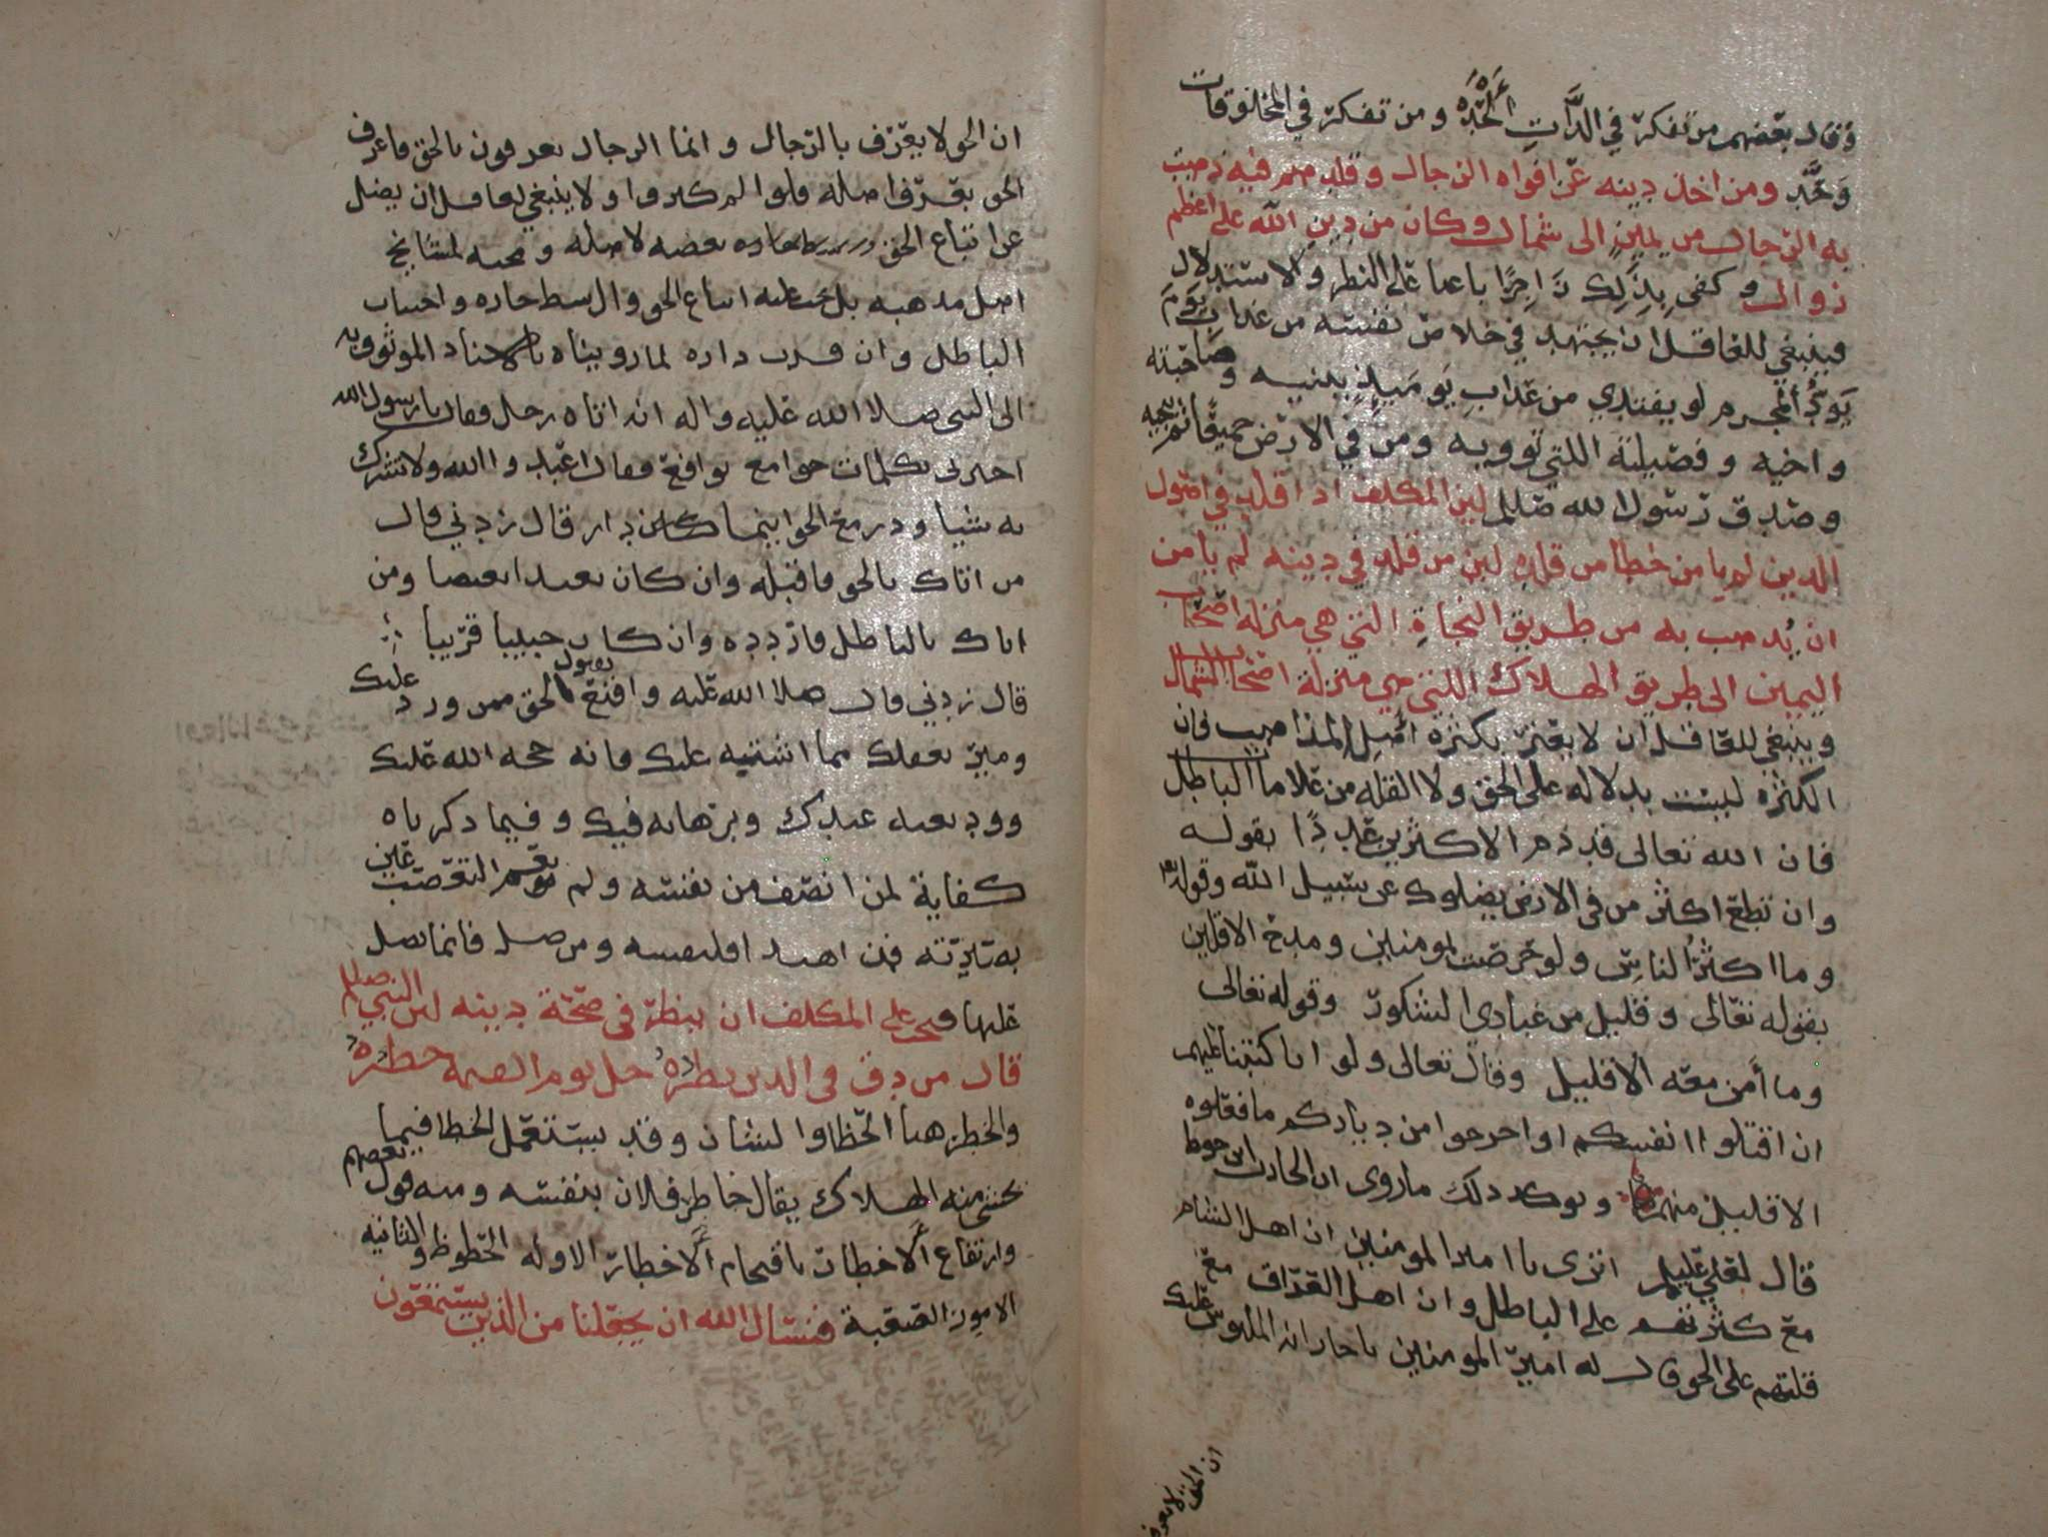 وقال بعضهم من تفكر في الذات الحد ومن تفكر في المخلوقات
وحد ومن اخذ دينه عن افواه الرجال وقلدهم فيه ذهبت
به الرجال من يمين الى شمال وكان من دين الله على اعظم
زوال وكفى بذلك زاجرا باعثا على النظر والاستدلال
فينبغي للعاقل ان يجتهد في خلاص نفسه من عذاب يوم
يود المجرم لو يفتدي من عذاب يوميذ ببنيه وصاحبته
واخيه وفصيلته اللتي توويه ومن في الارض جميعا ثم ينجيه
وصدق رسول الله صللم لين المكلف اذا قلد في اصول
الدين لم يامن خطا من قلده لين من قلد في دينه لم يامن
ان يذهب به من طريق النجاة التي هي منزلة اصحاب
اليمين الى طريق الهلاك اللتي هي منزلة اصحاب الشمال
وينبغي للعاقل ان لا يغتر بكثره اهل المذاهب فان
الكثره ليست بدلاله على الحق ولا القله من علامات الباطل
فان الله تعالى قد ذم الاكثرين عددا بقوله
وان تطع اكثر من في الارض يضلوك عن سبيل الله وقوله
وما اكثر الناس ولو حرصت بمومنين ومدح الاقلين
بقوله تعالى وقليل من عبادي الشكور وقوله تعالى
وما أمن معه الا قليل وقال تعالى ولو انا كتبنا عليهم
ان اقتلوا انفسكم او اخرجوا من دياركم ما فعلوه
الا قليل منهم ويوكد ذلك ماروى ان الحارث ابن حوط
قال لعلي عليلم اترى يا امير المومنين ان اهل الشام
مع كثرتهم على الباطل وان اهل العراق مع
قلتهم على الحق قال له امير المومنين ياحار انه الملبوس عليك
ان الحق لا يعرف
ان الحق لا يعرف بالرجال وانما الرجال يعرفون بالحق فاعرف
الحق تعرف اهله قلوا ام كثروا ولا ينبغي لعاقل ان يضل
عن اتباع الحق بعصه لاصله ومحبه لمشايخ
اهل مذهبه بل عليه اتباع الحق وان شط جاره واجتناب
الباطل وان قرب داره لما رويناه بالاسناد الموثوق به
الى النبي صلا الله عليه واله انه اتاه رجل وقال يا رسول الله
اخبرني بكلمات جوامع نوافع فقال اعبد والله ولا تشرك
به شيا ودر مع الحق اينما كان دار قال زدني قال
من اتاك بالحق فاقبله وان كان بعيدا بغيضا ومن
اتاك بالباطل فاردده وان كان حبيبا قريبا
قال زدني قال صلا الله عليه واقنع بقبول الحق ممن ورد عليك
وميز بعقلك ما اشتبه عليك فانه حجه الله عليك
ووديعته عندك وبرهانه فيك وفيما ذكرناه
كفاية لمن انصف من نفسه ولم يعم التعصب عين
بصيرته فمن اهتدى فلنفسه ومن ضل فانما يضل
عليها فيجب على المكلف ان ينظر في صحة دينه لين النبي صللم
قال من دق في الدين نظره جل يوم القيمه خطره
والخطر هنا الحظ او الشان وقد يستعمل الخطا فيما
يخشى منه الهلاك يقال خاطر فلان بنفسه ومنه قول بعضهم
وارتفاع الاخطار باقتحام الاخطار الاوله الحظوظ والثانيه
الامور الصعبة فنسال الله ان يجعلنا من الذين يستمعون